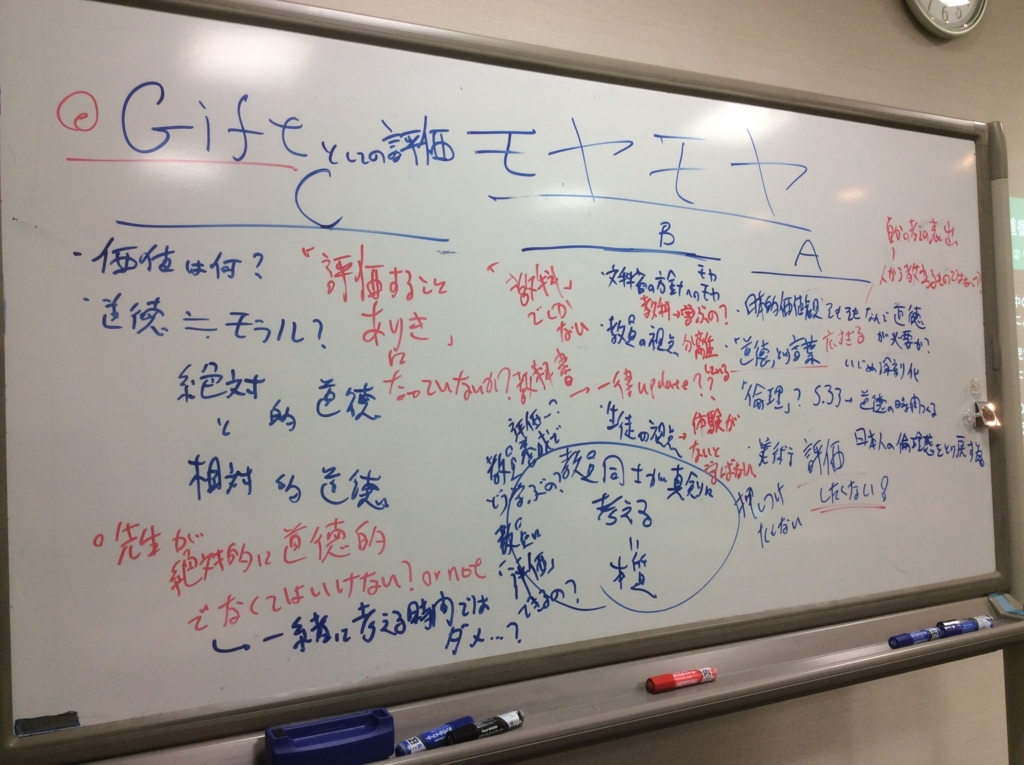 Giftとしての評価 モヤモヤ
C
・価値は何?
・道徳≒モラル?
絶対的道徳
と
相対的道徳
「評価すること
ありき」
に
なっていないか?
○先生が
絶対的に道徳的
でなくてはいけない?or not
一緒に考える時間では
ダメ…?
B
「教科」
でしか
ない
・文科省の方針へのモヤモヤ
教科→学ぶの?
・教員の視点
分離
している
教科書
→一律update??
・生徒の視点
→体験が
ないと
学ばない
評価…?
教員養成で
どう学ぶの?
教員が
「評価」
できるの?
教員同士が真剣に
考える
=
機
A
自分の考えの表出
人から教わるものではない?
・日本的価値観
そもそもなんで道徳
が必要か?
・「道徳」という言葉
広すぎる
いじめ深刻化
「倫理」?
S.33→道徳の時間つくる
日本人の倫理感をとり戻す
評価
したくない?
押しつけ
たくない